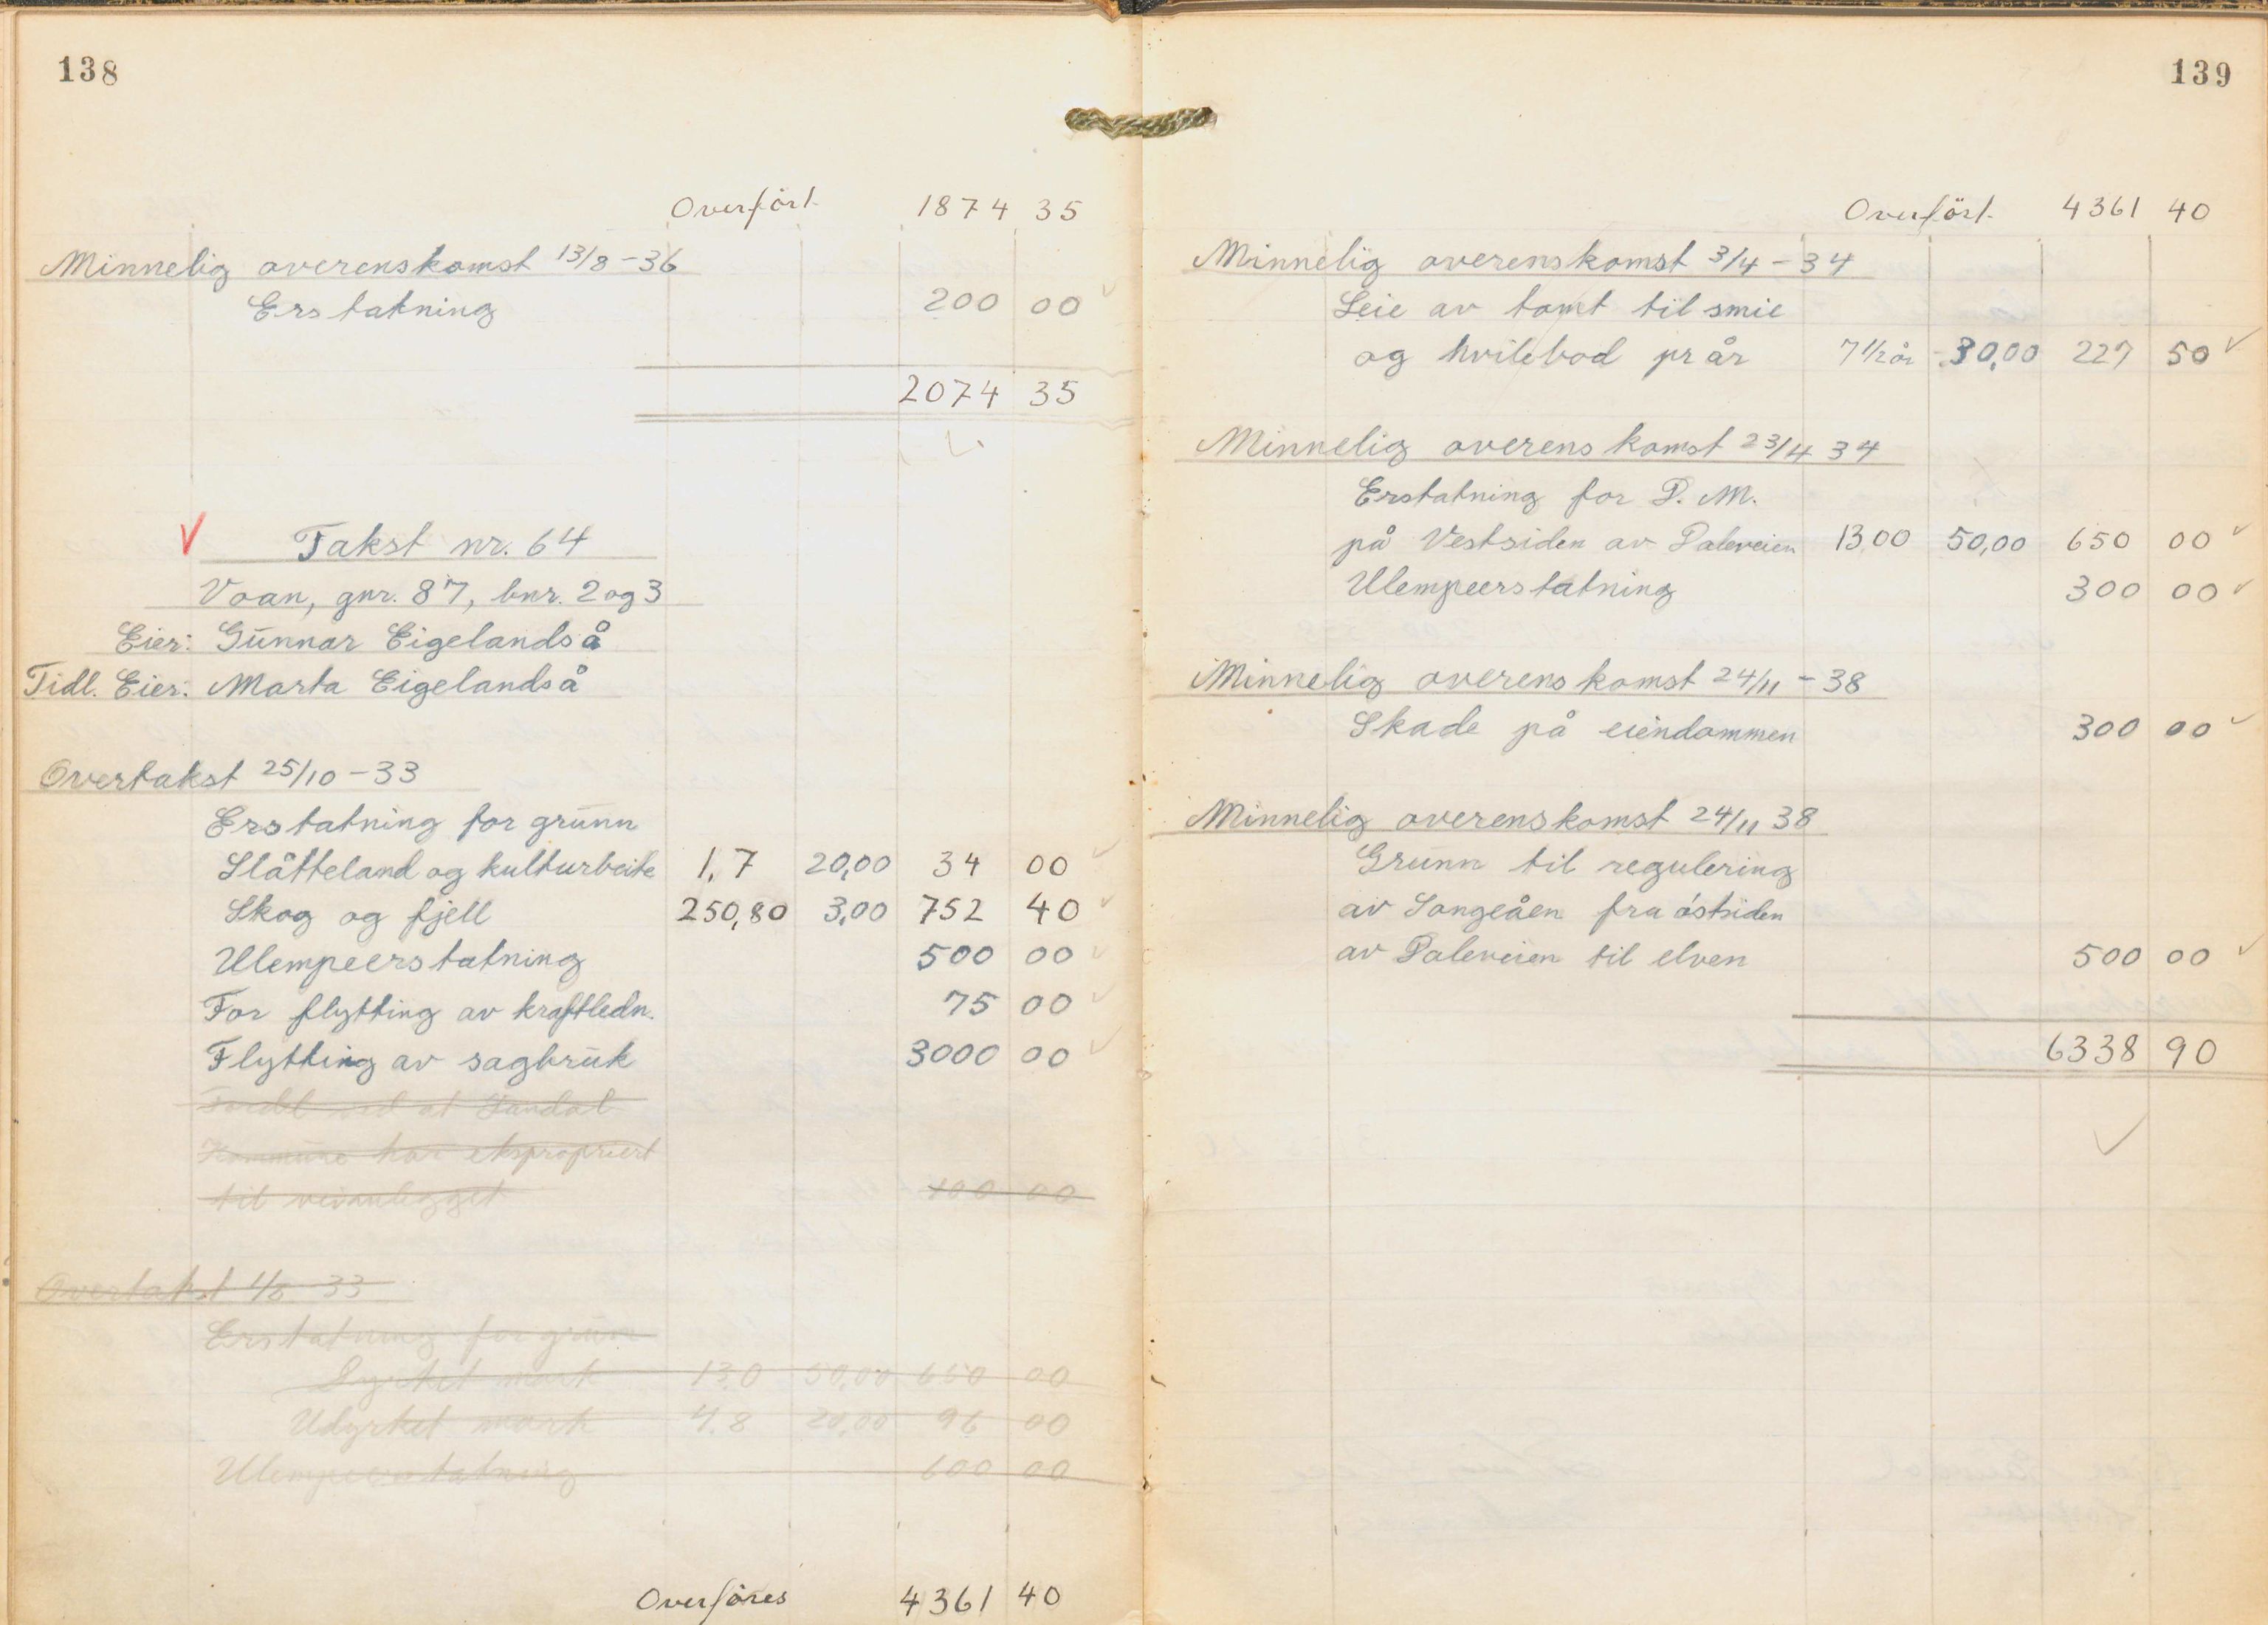 138
Overført 1874 35
Minnelig overenskomst 13/8-36
Erstatning 200 00
2074 35
Takst nr. 64
Voan, gnr. 87, bnr. 2 og 3
Eier: Gunnar Eigelandså
Tidl. Eier: Marta Eigelandså
Overtakst 25/10-33
Erstatning for grunn
Slåtteland og kulturbeite 1,7 20,00 34 00
Skog og fjell 250,80 3,00 752 40
Ulempeerstatning 500 00
For flytting av kraftledn. 75 00
Flytting av sagbruk 3000 00
ved at
Kommune har ekspropriert
til veianlegget 100 00
Overtakst 1/8 33
Erstatning for grunn
Dyrket mark 13.0 50,00 650 00
Udyrket mark 4.8 20,00 96 00
Ulempeerstatning 600 00
Overføres 4361 40
139
Overført 4361 40
Minnelig overenskomst 3/4-34
Leie av tomt til smie
og hvilebod pr år 7 1/2 år 30,00 227 50
Minnelig overenskomst 23/4 34
Erstatning for D. M.
på Vestsiden av Daleveien 13,00 50,00 650 00
Ulempeerstatning 300 00
Minnelig overenskomst 24/11-38
Skade på eiendommen 300 00
Minnelig overenskomst 24/11 38
Grunn til regulering
av Songeåen fra østsiden
av Daleveien til elven 500 00
6338 90